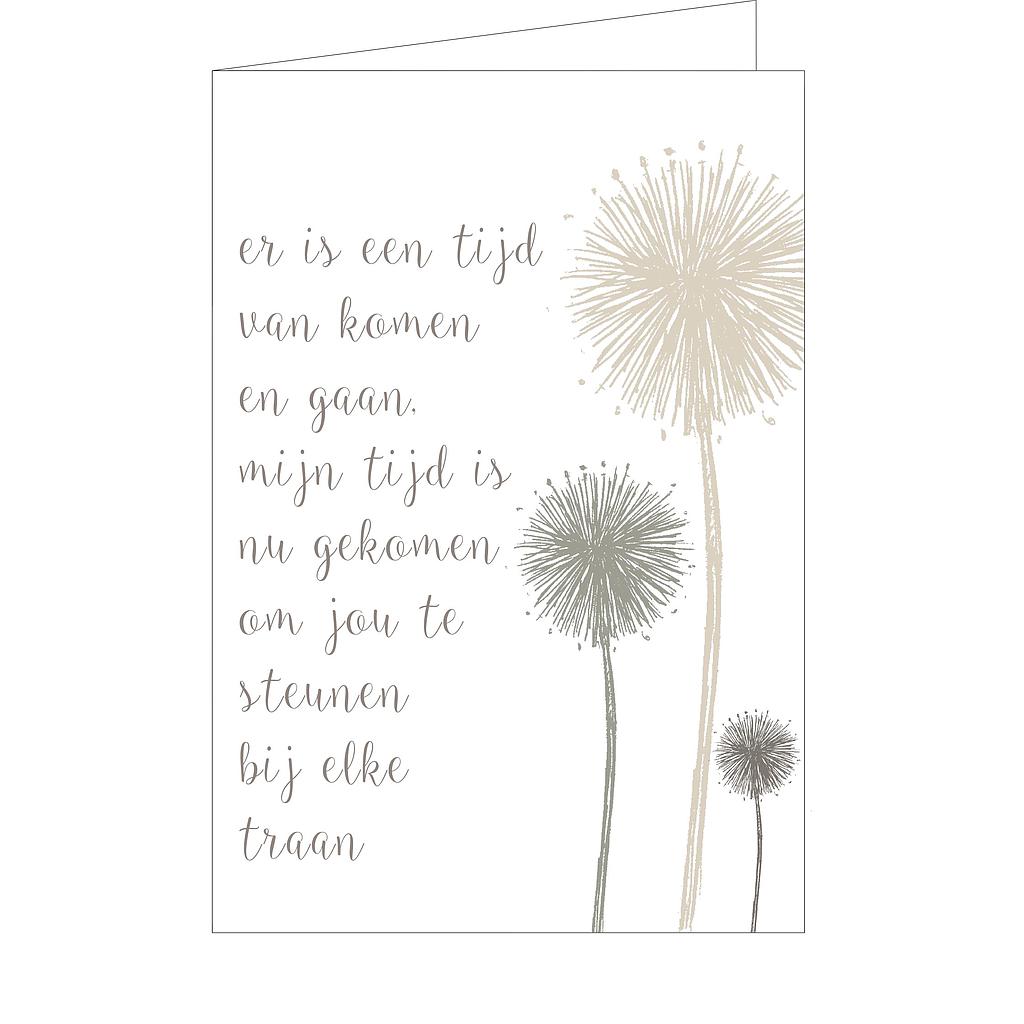 er is een tijd
van komen
en gaan.
mijn tijd is
nu gekomen
om jou te
steunen
bij elke
traan